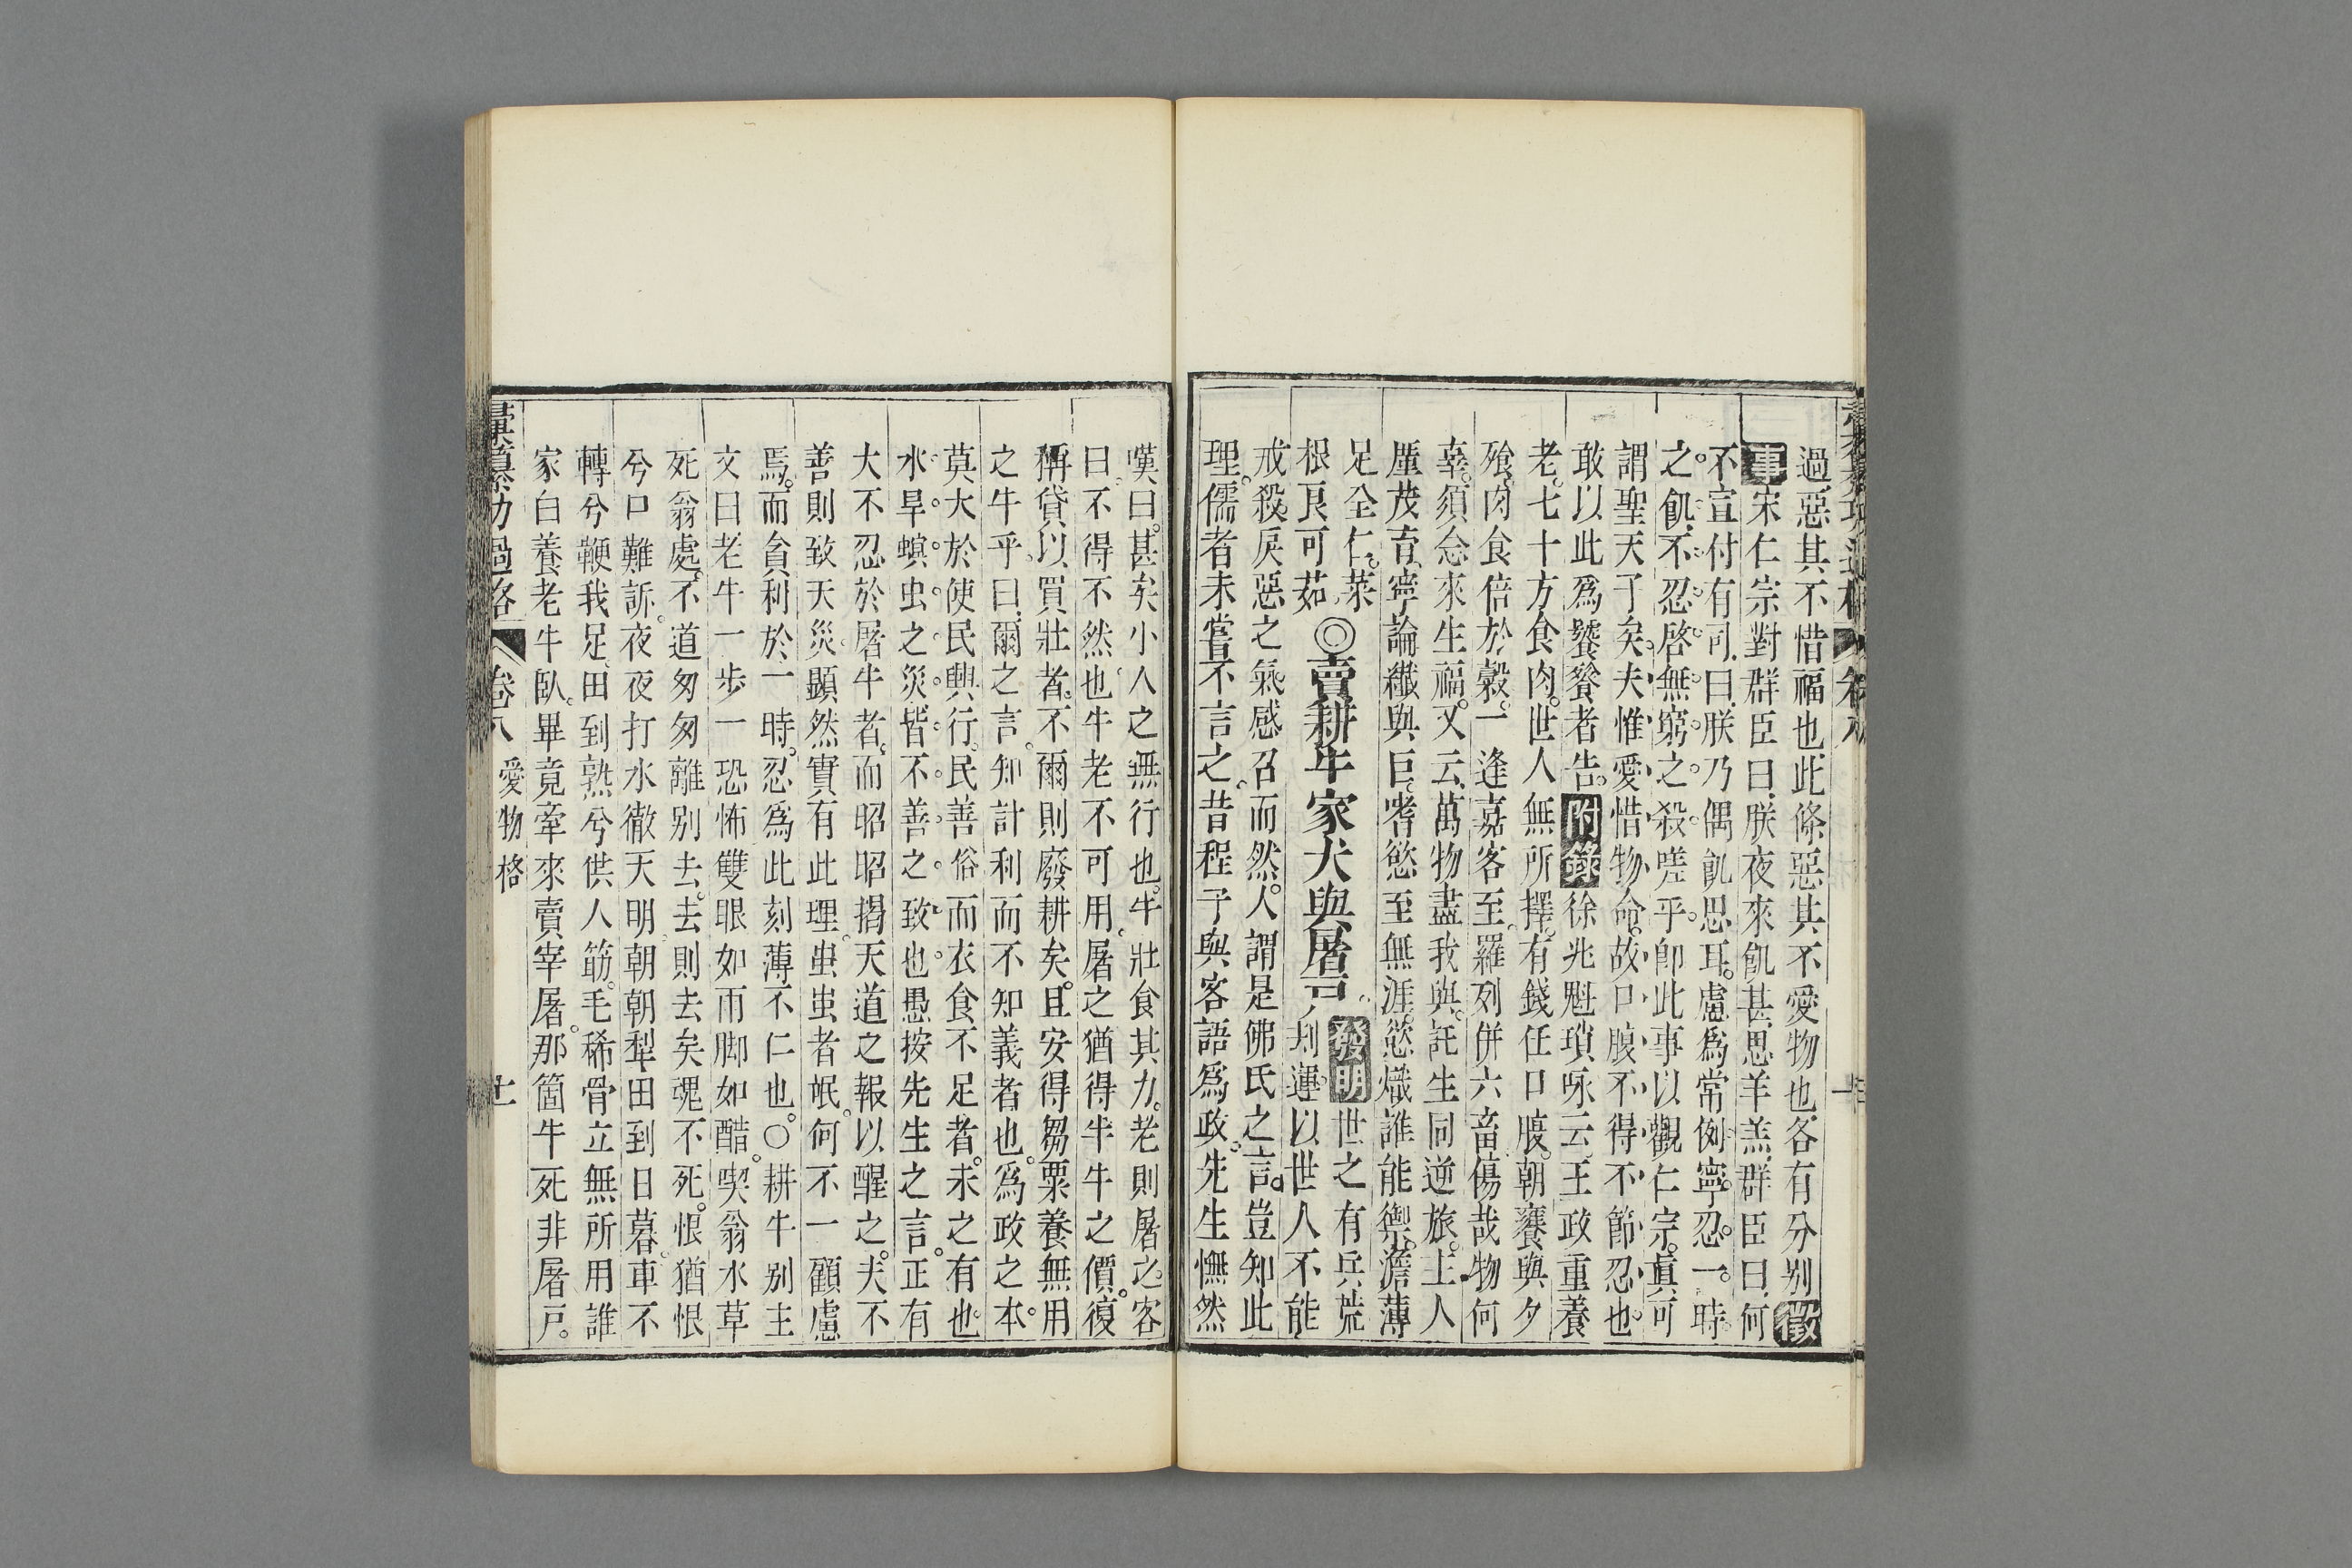 過惡其不惜福也此條惡其不愛物也各有分别徵
事宋仁宗對群臣曰朕夜來飢甚思羊羔群臣曰何
不宣付有司曰朕乃偶飢思耳慮爲常例寧忍一時
之飢不忍啓無窮之殺嗟乎卽此事以觀仁宗眞可
謂聖天子矣夫惟愛惜物命故口腹不得不節忍也
敢以此爲饕餮者告附錄徐兆魁瑣咏云王政重養
老七十方食肉世人無所擇有錢任口腹朝饔與夕
飱肉食倍於穀一逢嘉客至羅列併六畜傷哉物何
辜須念來生福又云萬物盡我與託生同逆旅上人
厪茂育寧論纖與巨嗜慾至無涯慾熾誰能禦澹薄
足全仁菜
根良可茹
◎賣耕牛家犬與屠戸
發明世之有兵荒
刦運以世人不能
戒殺戾惡之氣感召而然人謂是佛氏之言豈知此
理儒者未嘗不言之昔程子與客語爲政先生憮然
嘆曰甚矣小人之無行也牛壯食其力老則屠之客
曰不得不然也牛老不可用屠之猶得半牛之價復
稱貸以買壯者不爾則廢耕矣且安得芻粟養無用
之牛乎曰爾之言知計利而不知義者也爲政之本
莫大於使民興行民善俗而衣食不足者未之有也
水旱螟虫之災皆不善之致也愚按先生之言正有
大不忍於屠牛者而昭昭揭天道之報以醒之夫不
善則致天災顯然實有此理蚩蚩者氓何不一顧慮
焉而貪利於一時忍爲此刻薄不仁也○耕牛别主
文曰老牛一步一恐怖雙眼如雨脚如醋喫翁水草
死翁處不道匆匆離别去去則去矣魂不死恨猶恨
兮口難訴夜夜打水徹天明朝朝犁田到日暮車不
轉兮鞭我足田到熟兮供人筯毛稀骨立無所用誰
家白養老牛臥畢竟牽來賣宰屠那箇牛死非屠戸
彚纂功過格
卷八
愛物格